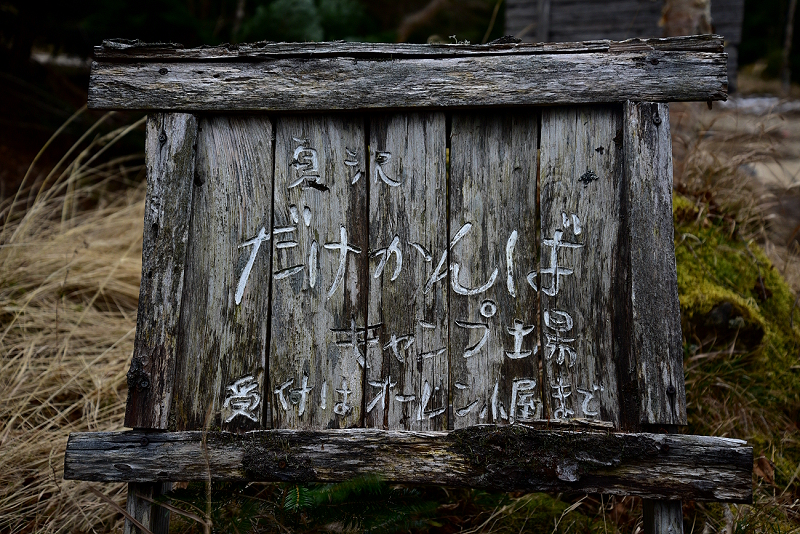 真沢
だけかんば
キャンプ土場
受付はオービン小屋まで